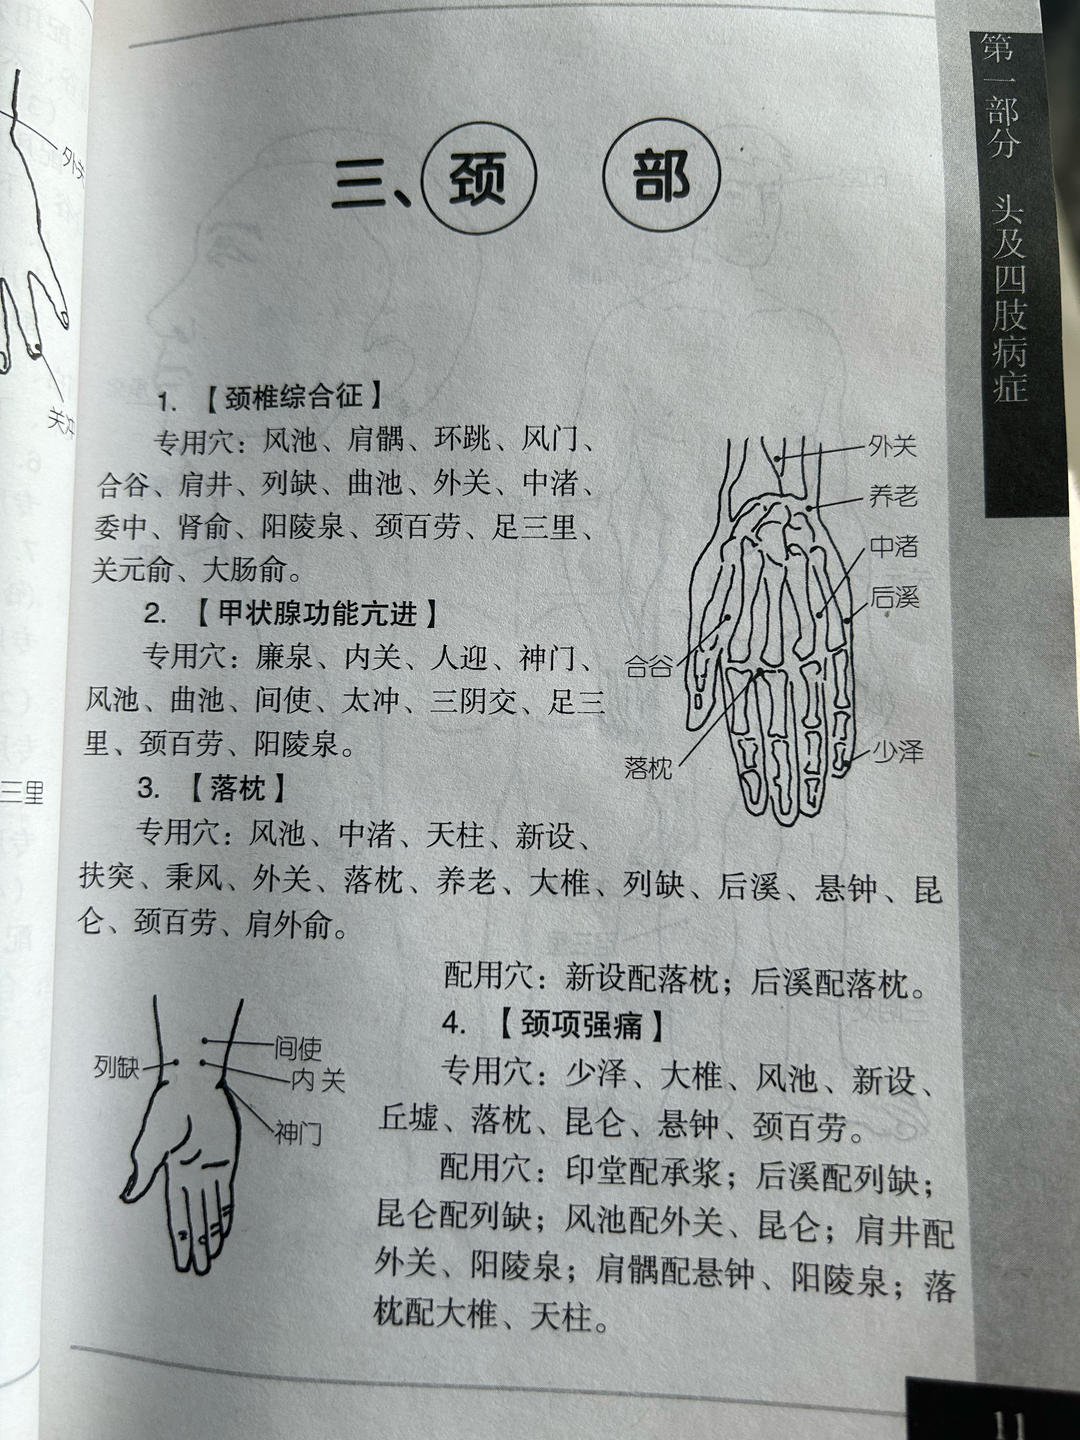 第一部分 头及四肢病症
三、颈 部
1. 【颈椎综合征】
专用穴：风池、肩髃、环跳、风门、
合谷、肩井、列缺、曲池、外关、中渚、
委中、肾俞、阳陵泉、颈百劳、足三里、
关元俞、大肠俞。
2. 【甲状腺功能亢进】
专用穴：廉泉、内关、人迎、神门、
风池、曲池、间使、太冲、三阴交、足三
里、颈百劳、阳陵泉。
3. 【落枕】
专用穴：风池、中渚、天柱、新设、
扶突、秉风、外关、落枕、养老、大椎、列缺、后溪、悬钟、昆
仑、颈百劳、肩外俞。
外关
养老
中渚
后溪
合谷
落枕
少泽
配用穴：新设配落枕；后溪配落枕。
4. 【颈项强痛】
专用穴：少泽、大椎、风池、新设、
丘墟、落枕、昆仑、悬钟、颈百劳。
配用穴：印堂配承浆；后溪配列缺；
昆仑配列缺；风池配外关、昆仑；肩井配
外关、阳陵泉；肩髃配悬钟、阳陵泉；落
枕配大椎、天柱。
列缺
间使
内关
神门
外关
关冲
三里
11